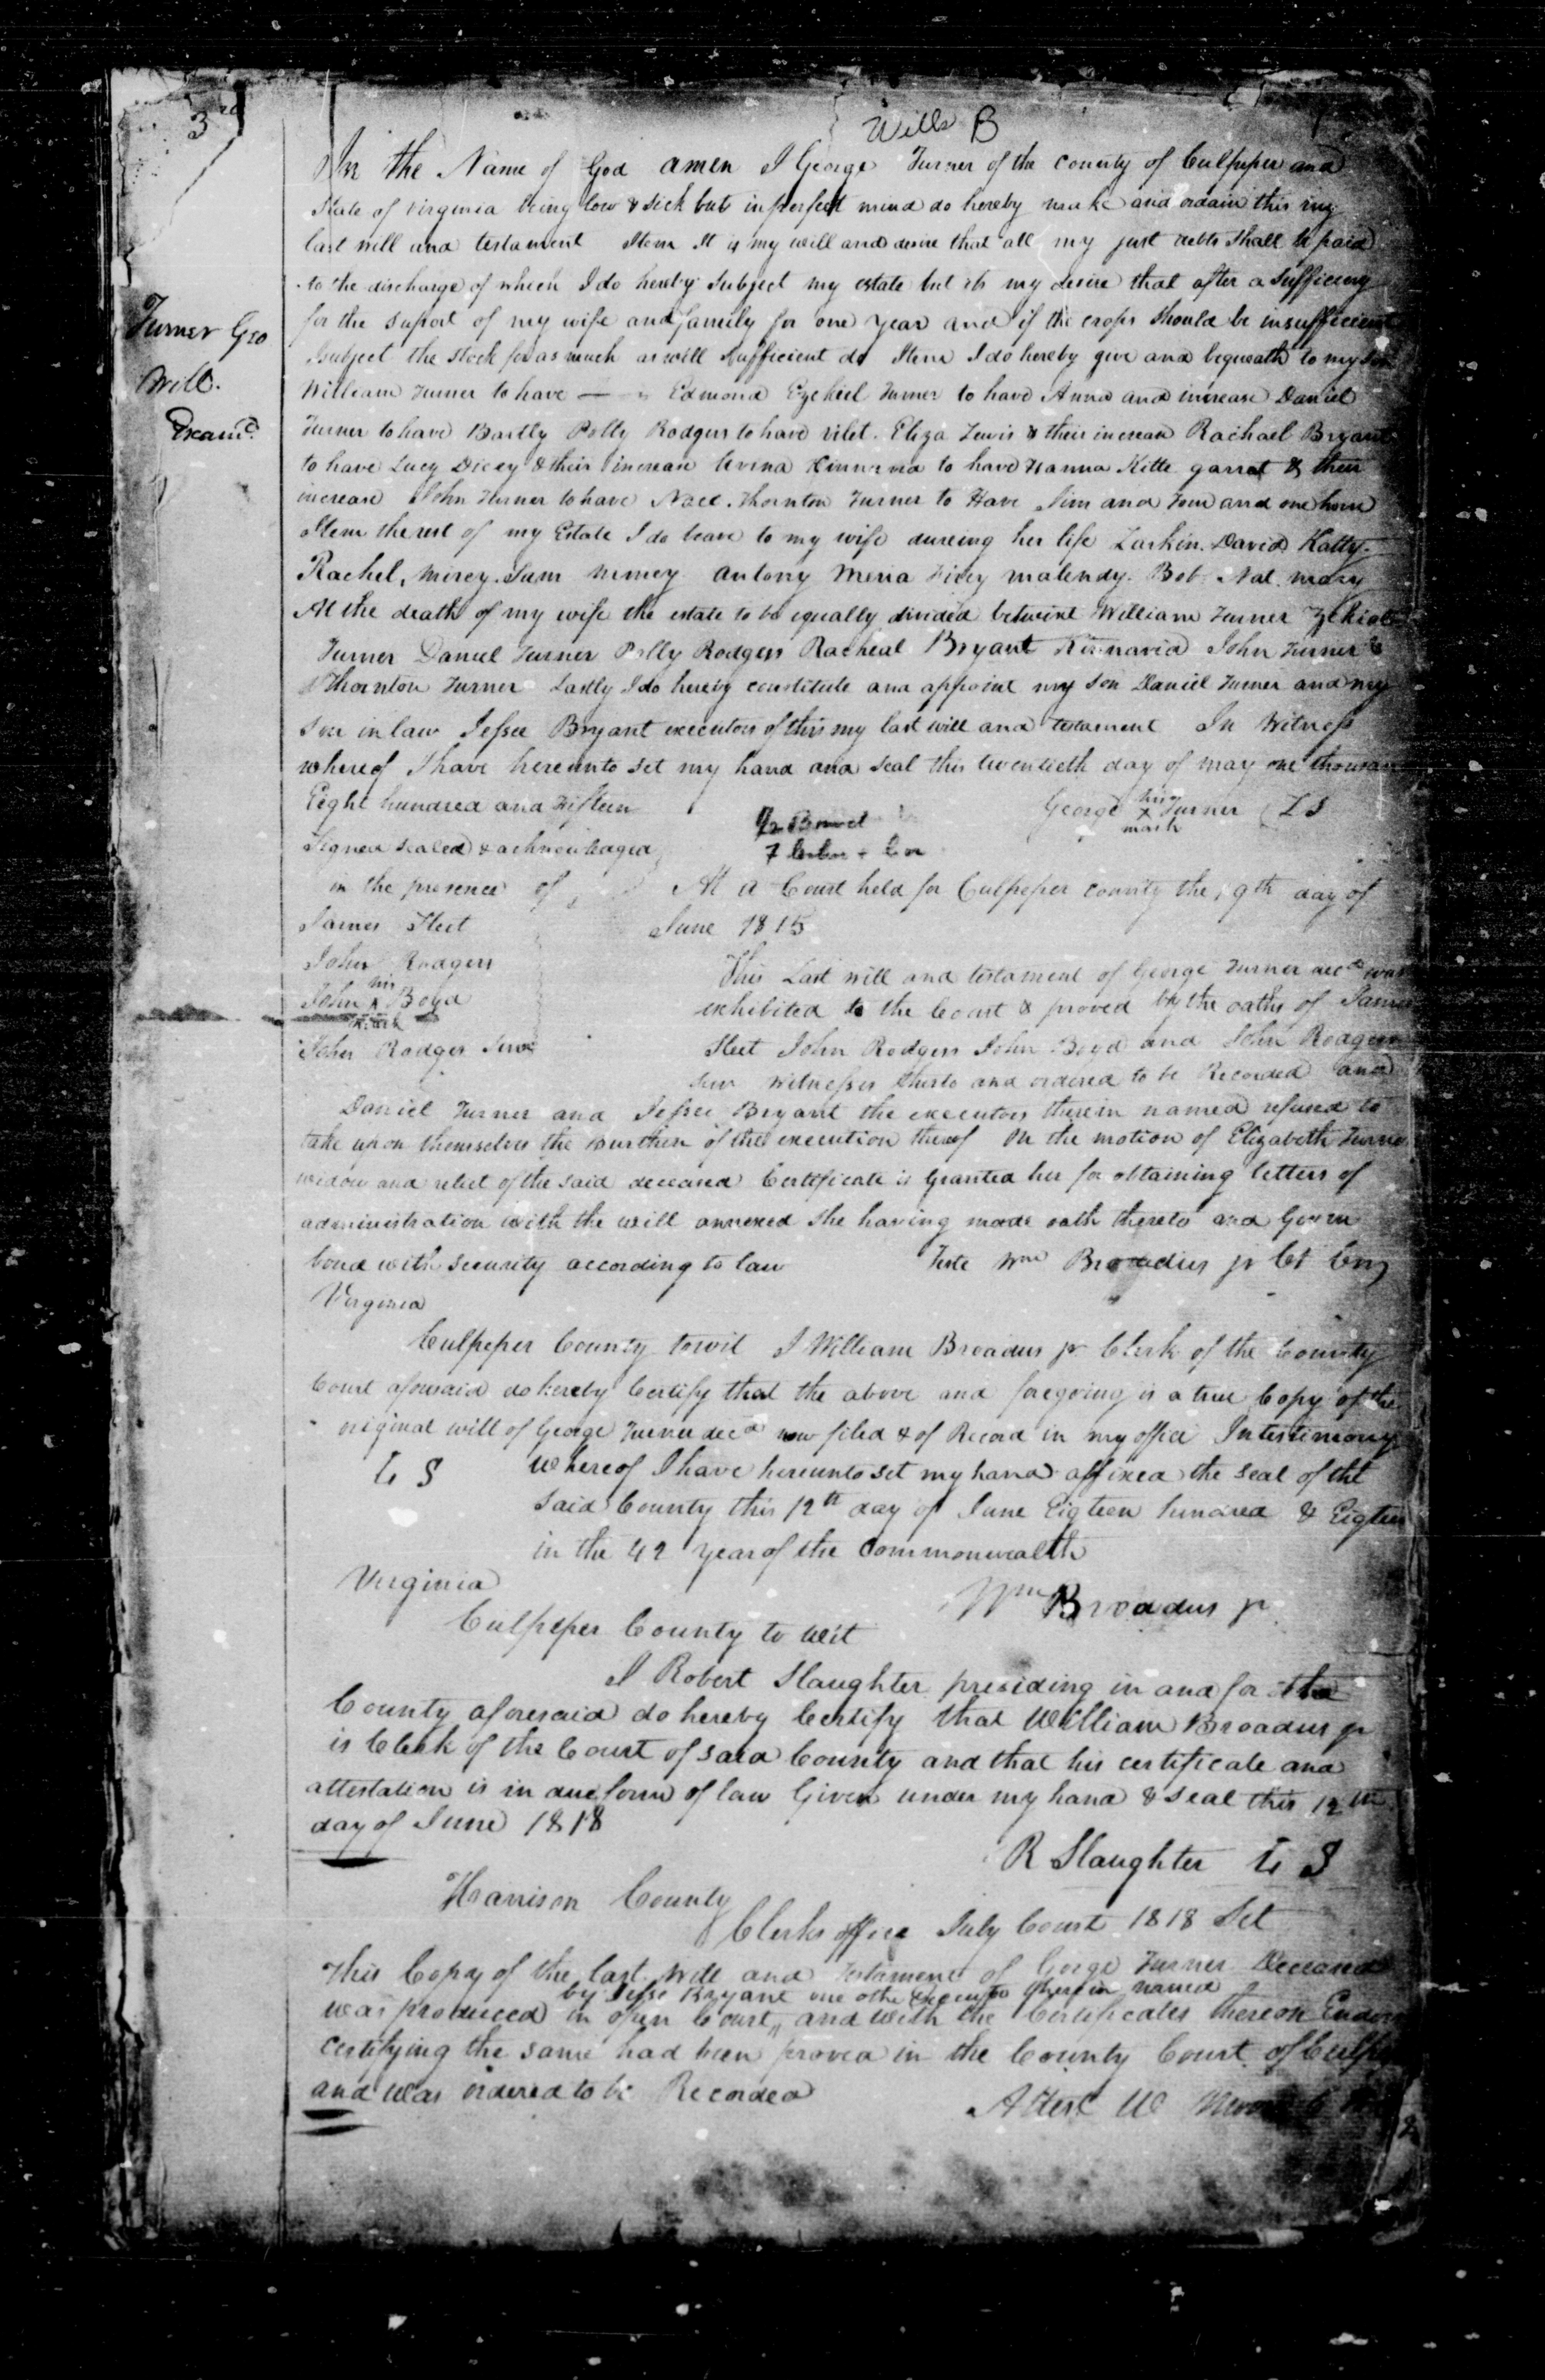 3rd
Wills B
In the Name of God amen I George Turner of the county of Culpeper and
State of virginia being low & sick but in perfect mind do hereby make and ordain this my
last will and testament Item It is my will and desire that all my just debts shall be paid
to the discharge of which I do hereby subject my estate but its my desire that after a sufficiency
for the suport of my wife and family for one year and if the crops should be insufficient
Turner Geo
Will.
Examd.
subject the stock for as much as will sufficient do Item I do hereby give and bequeath to my son
William Turner to have Edmond Ezekiel Turner to have Anna and increase Daniel
Turner to have Bartly Polly Rodgers to have vilet. Eliza Lewis & their increase Rachael Bryant
to have Lucy Dicey & their increase to have Hanna Kitte garrat & their
increase John Turner to have Nace. Thornton Turner to Have Jim and Tom and one horse
Item the rest of my Estate I do leave to my wife dureing her life Larkin. David Hatty.
Rachel, mirey. Sam antony Meria malendy. Bob. Nat. mary
At the death of my wife the estate to be equally divided betwixt William Turner
Turner Daniel Turner Polly Rodgers Racheal Bryant John Turner &
Thornton Turner Lastly I do hereby constitute and appoint my son Daniel Turner and my
son in law Jessee Bryant executors of this my last will and testament In Witness
whereof I have hereunto set my hand and seal this twentieth day of may one thousand
Eight hundred and Fifteen
George his x mark Turner (L S
Signed sealed & acknowledged
in the presence of
At a Court held for Culpeper county the 19th day of
James Sleet
June 1815
John Rodgers
This Last will and testament of George Turner decd was
John his x mark Boyd
exhibited to the Court & proved by the oaths of James
John Rodgers Senr
Sleet John Rodgers John Boyd and John Rodgers
Senr witnesses thereto and ordered to be Recorded and
Daniel Turner and Jessee Bryant the executors therein named refused to
take upon themselves the burthen of the execution thereof On the motion of Elizabeth Turner
widow and relict of the said deceased Certificate is Granted her for obtaining letters of
administration with the will annexed she having made oath thereto and Given
bond with security according to law Teste Wm Broadus jr
Virginia
Culpeper County towit I William Broadus jr Clerk of the County
Court aforesaid do hereby Certify that the above and foregoing is a true Copy of the
original will of George Turner decd now filed & of Record in my office In testimony
L S whereof I have hereunto set my hand affixed the seal of the
said County this 12th day of June Eigteen hundred & Eigteen
in the 42 year of the Commonwealth
Virginia
Wm Broadus jr
Culpeper County to wit
I Robert Slaughter presiding in and for the
County aforesaid do hereby Certify that William Broadus jr
is Clerk of the Court of said County and that his certificate and
attestation is in due form of law Given under my hand & seal this 12th
day of June 1818
R Slaughter L S
Harrison County
Clerks office July Court 1818 Sct
This Copy of the last Will and Testament of Gorge Turner Deceased
by Jesse Bryant one othe Executo therein named
was produced in open Court and with the Certificates thereon
certifying the same had been proved in the County Court of
and was ordered to be Recorded
Attest W